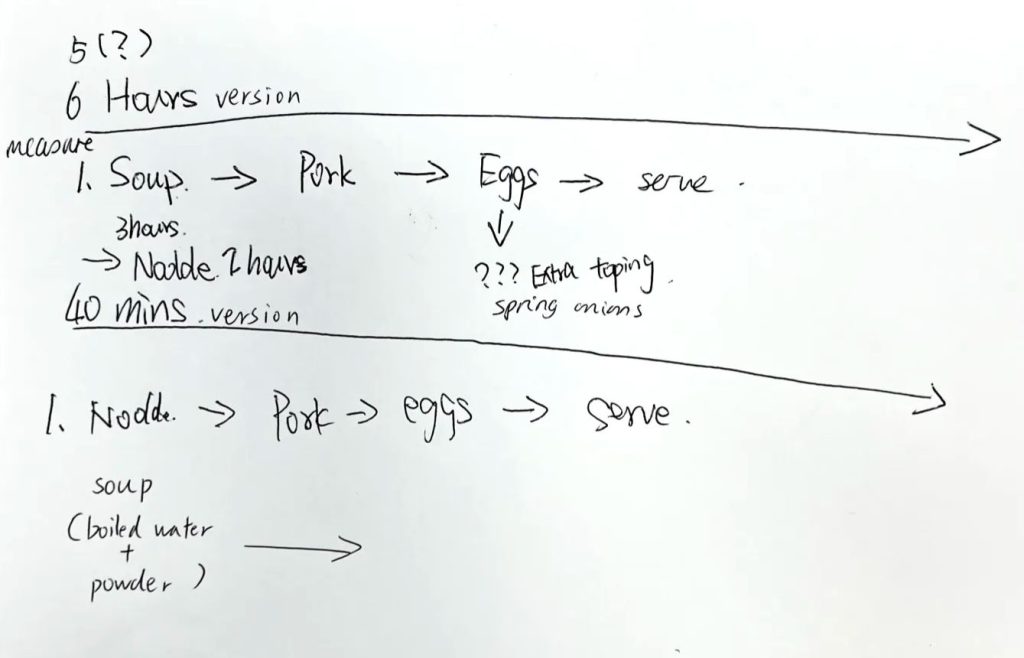 5(?)
6 Hours version
measure
1. Soup. → Pork → Eggs → serve.
3hours.
→ Nodde. 2 hours
↓
??? Extra toping.
spring onions
40 mins. version
1. Nodde. → Pork → eggs → serve.
soup
(boiled water
+
powder) →